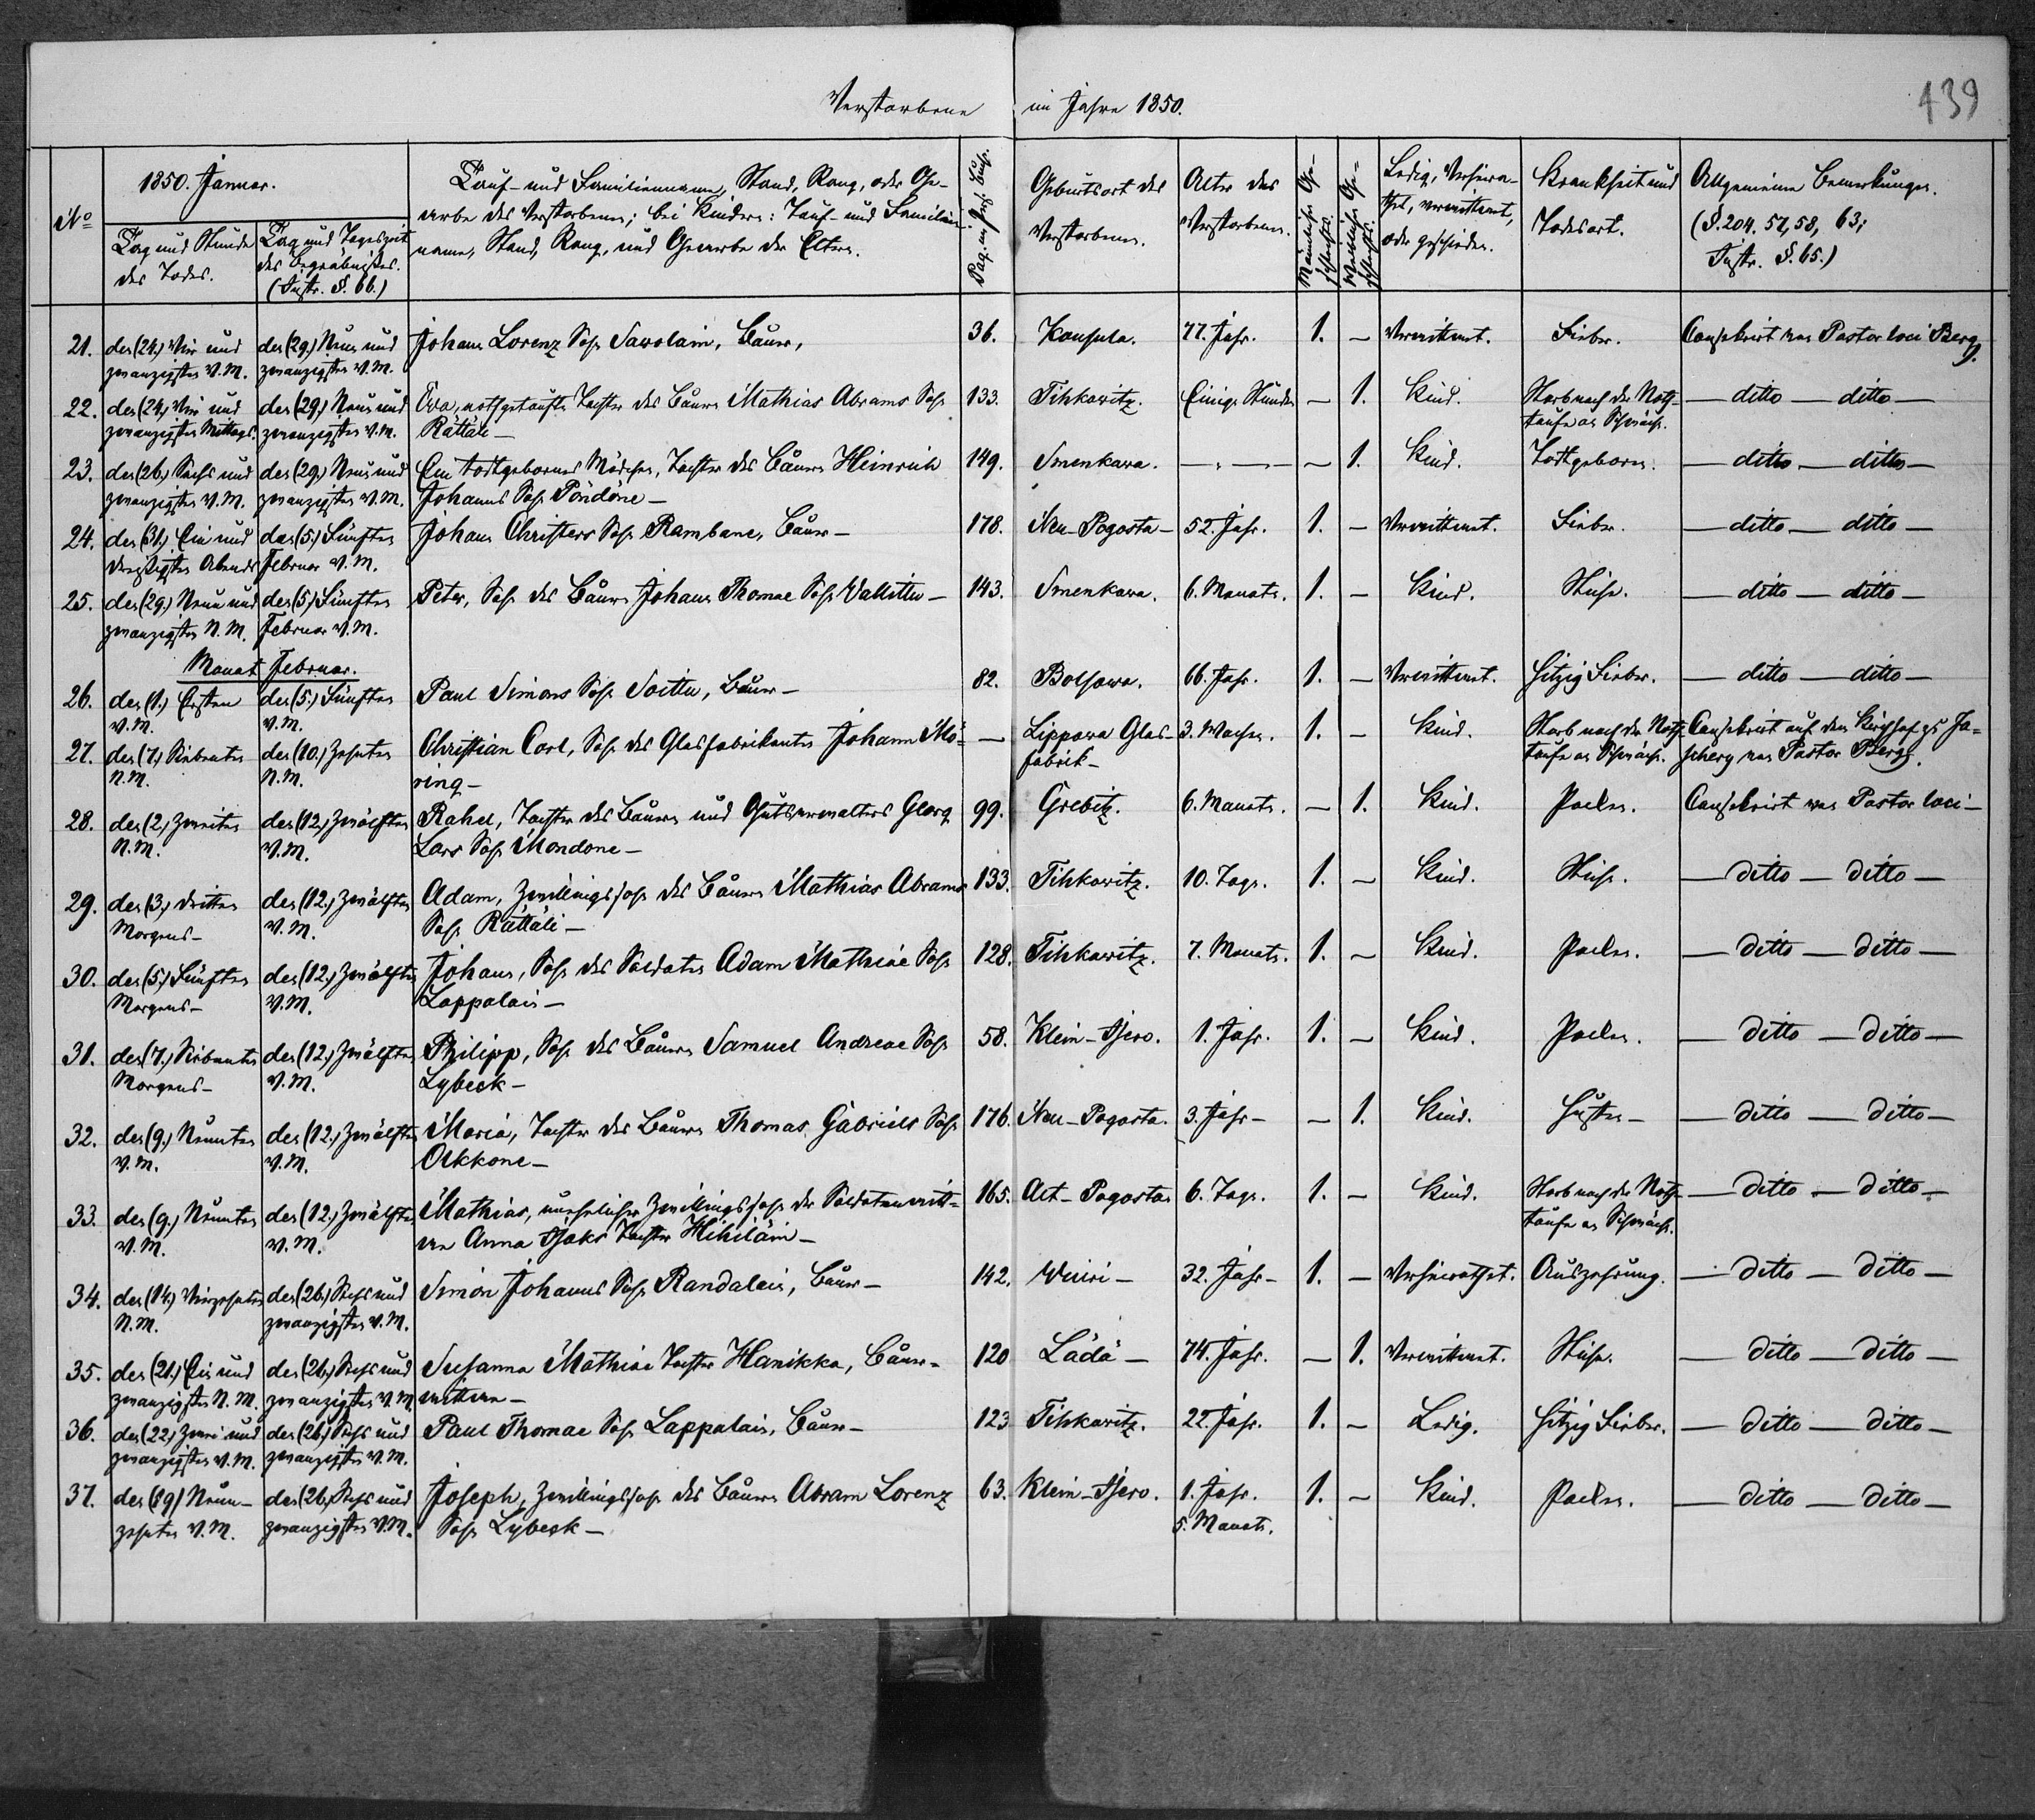 Verstorbene im Jahre 1850.
439
No
1850. Januar.
Tag und Stunde des Todes.
Tag und Tageszeit des Begräbnißes. (Instr. §. 66.)
Tauf- und Familienname, Stand, Rang, oder Ge-
werbe des Verstorbenen; bei Kindern: Tauf- und Familien-
name, Stand, Rang, und Gewerbe der Eltern.
Pag. im Pers. Buch.
Geburtsort des Verstorbenen.
Alter des Verstorbenen.
Männlichen Ge-
schlechts.
Weiblichen Ge-
schlechts.
Ledig, Verheira-
thet, verwittwet,
oder geschieden.
Krankheit und
Todesart.
Allgemeine Bemerkungen.
(§. 204. 57, 58, 63;
Instr. §. 65.)
21. den (24.) Vier und den (29.) Neun und Johann Lorenz Sohn Sawolain, Bauer, 36. Konsula. 77. Jahr. 1. — Verwittwet. Fieber. Consekrirt von Pastor loci Berg.
zwanzigsten V.M. zwanzigsten V.M.
22. den (24.) Vier und den (29.) Neun und Ewa, nothgetaufte Tochter des Bauern Mathias Abrams Sohn 133. Tihkowitz. Einige Stunden — 1. Kind. Starb nach der Noth- — ditto — ditto —
zwanzigsten Mittags. zwanzigsten V.M. Rättäli — taufe an Schwäche.
23. den (26.) Sechs und den (29.) Neun und Ein todtgebornes Mädchen, Tochter des Bauern Heinrich 149. Smenkawa. — — — 1. Kind. Todtgeboren. — ditto — ditto —
zwanzigsten V.M. zwanzigsten V.M. Johanns Sohn Pöndöne —
24. den (31.) Ein und den (5.) Fünften Johann Christers Sohn Rambane, Bauer — 178. Neu-Pogosta — 52. Jahr. 1. — Verwittwet. Fieber. — ditto — ditto —
dreißigsten Abends Februar V.M.
25. den (29.) Neun und den (5.) Fünften Peter, Sohn des Bauern Johann Thomae Sohn Vallittu — 143. Smenkawa. 6. Monate. 1. — Kind. — ditto — ditto —
zwanzigsten N.M. Februar V.M.
Monat Februar.
26. den (1.) Ersten den (5.) Fünften Paul Simons Sohn Soittu, Bauer — 82. Bolsowa. 66. Jahr. 1. — Verwittwet. Hitzig Fieber. — ditto — ditto —
V.M. V.M.
27. den (7.) Siebenten den (10.) Zehnten Christian Carl, Sohn des Glasfabrikanten Johann Mö- — Lippowa Glas- 3. Wochen. 1. — Kind. Starb nach der Noth- Consekrirt auf dem Kirchhof zu Ja-
N.M. N.M. ring — fabrik — taufe an Schwäche. von Pastor Berg.
28. den (2.) Zweiten den (12.) Zwölften Rahel, Tochter des Bauern und Gutsverwalters Georg 99. Grebitz. 6. Monate. — 1. Kind. Pocken. Consekrirt von Pastor loci —
N.M. V.M. Lars Sohn Mondone —
29. den (3.) dritten den (12.) Zwölften Adam, Zwillingssohn des Bauern Mathias Abrams 133. Tihkowitz. 10. Tage. 1. — Kind. — ditto — ditto —
Morgens — V.M. Sohn Rättäli —
30. den (5.) Fünften den (12.) Zwölften Johann, Sohn des Soldaten Adam Mathiae Sohn 128. Tihkowitz. 7. Monate. 1. — Kind. Pocken. — ditto — ditto —
Morgens — V.M. Lappalain —
31. den (7.) Siebenten den (12.) Zwölften Philipp, Sohn des Bauern Samuel Andreae Sohn 58. Klein-Isero. 1. Jahr. 1. — Kind. Pocken. — ditto — ditto —
Morgens — V.M. Lybeck —
32. den (9.) Neunten den (12.) Zwölften Maria, Tochter des Bauern Thomas Gabriels Sohn 176. Neu-Pogosta. 3. Jahr — — 1. Kind. Husten — — ditto — ditto —
V.M. V.M. Okkone —
33. den (9.) Neunten den (12.) Zwölften Mathias, unehelicher Zwillingssohn der Soldatenwitt- 165. Alt-Pogosta 6. Tage. 1. — Kind. Starb nach der Noth- — ditto — ditto —
V.M. V.M. we Anna Isaks Tochter Hihiläin — taufe an Schwäche.
34. den (14.) Vierzehnten den (26.) Sechs und Simon Johanns Sohn Randalain, Bauer — 142. Wuiri — 32. Jahr — 1. — Verheirathet. Auszehrung. — ditto — ditto —
N.M. zwanzigsten V.M.
35. den (21.) Ein und den (26.) Sechs und Susanna Mathiae Tochter Hanikka, Bauer- 120 Lädä — 74. Jahr. — 1. Verwittwet. — ditto — ditto —
zwanzigsten N.M. zwanzigsten V.M. wittwe —
36. den (22.) Zwei und den (26.) Sechs und Paul Thomae Sohn Lappalain, Bauer — 123. Tihkowitz. 22. Jahr. 1. — Ledig. Hitzig Fieber. — ditto — ditto —
zwanzigsten V.M. zwanzigsten V.M.
37. den (19.) Neun- den (26.) Sechs und Joseph, Zwillingssohn des Bauern Abram Lorenz 63. Klein-Isero. 1. Jahr. 1. — Kind. Pocken. — ditto — ditto —
zehnten V.M. zwanzigsten V.M. Sohn Lybeck — 5. Monate.